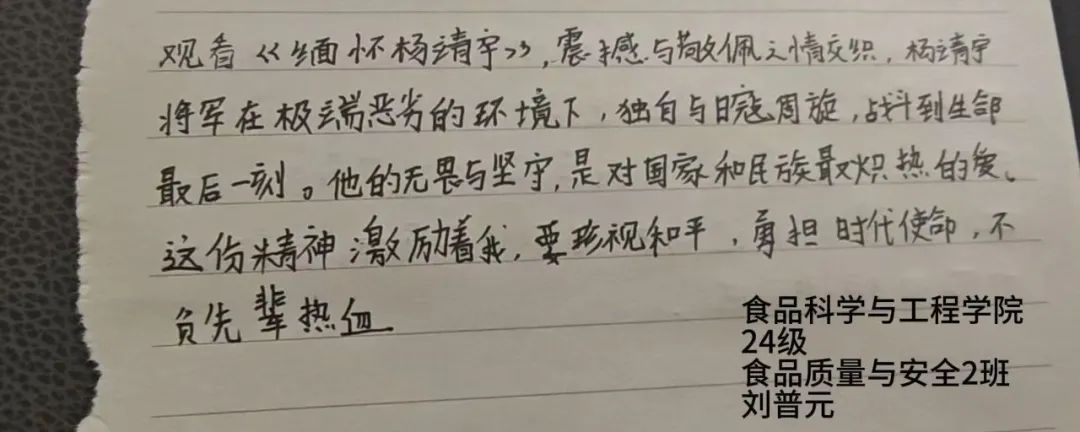 观看《缅怀杨靖宇》,震撼与敬佩之情交织，杨靖宇
将军在极端恶劣的环境下，独自与日寇周旋，战斗到生命
最后一刻。他的无畏与坚守,是对国家和民族最炽热的爱。
这份精神激励着我，要珍视和平，勇担时代使命，不
负先辈热血
食品科学与工程学院
24级
食品质量与安全2班
刘普元